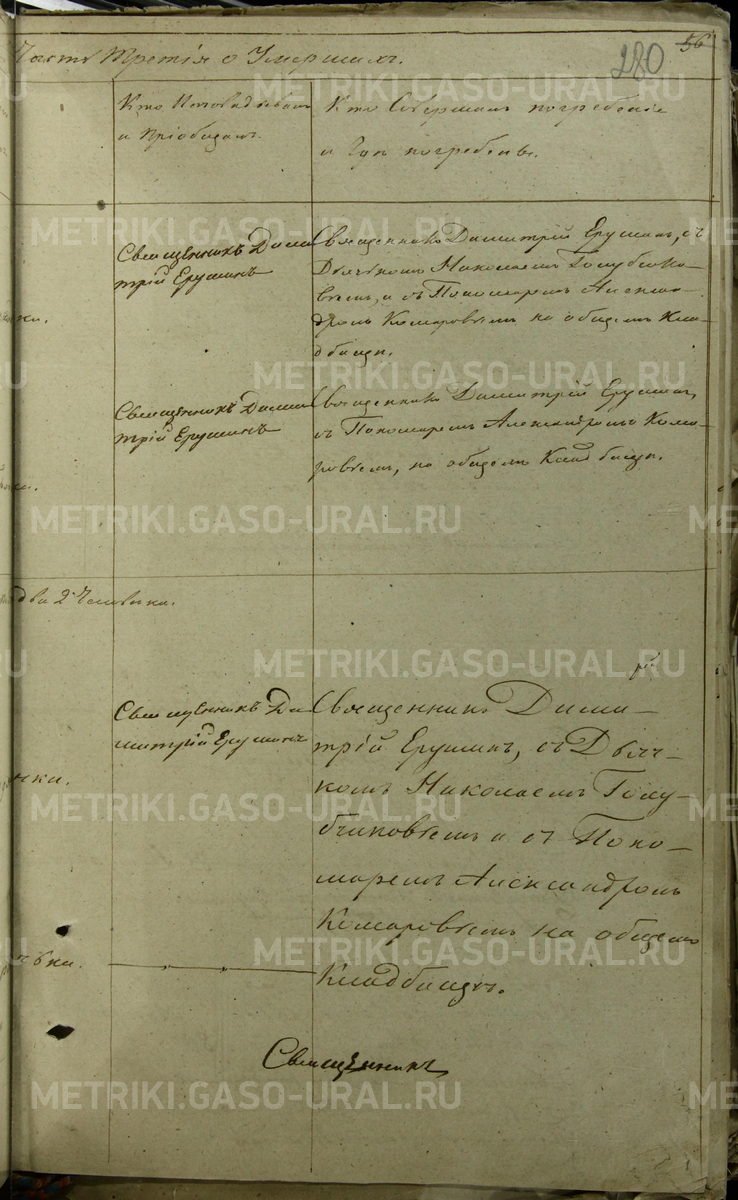 56
280
Часть Третія о Умершихъ.
Кто Исповѣдывалъ
и Пріобщалъ.
Кто Совершалъ погребеніе
и Гдѣ погребены.
Священникъ Дими
трій Ерушинъ
Священникъ Димитрій Ерушинъ, съ
Дьячкомъ Николаемъ Голубчико-
вымъ, и съ Пономаремъ Алекса-
дромъ Комаровымъ на общемъ Кла-
дбищѣ.
ки.
Священникъ Дими
трій Ерушинъ
Священникъ Димитрій Ерушинъ,
съ Пономаремъ Александромъ Кома-
ровымъ, на общемъ Кладбищѣ.
два 2 Человѣка.
Священникъ Ди
митрій Ерушинъ
Священникъ Дими-
трій Ерушинъ, съ Дьяч-
комъ Николаемъ Голу-
бчиковымъ и съ Поно-
маремъ Александромъ
Комаровымъ на общемъ
Кладбищѣ.
ки.
Священникъ
METRIKI.GASO-URAL.RU